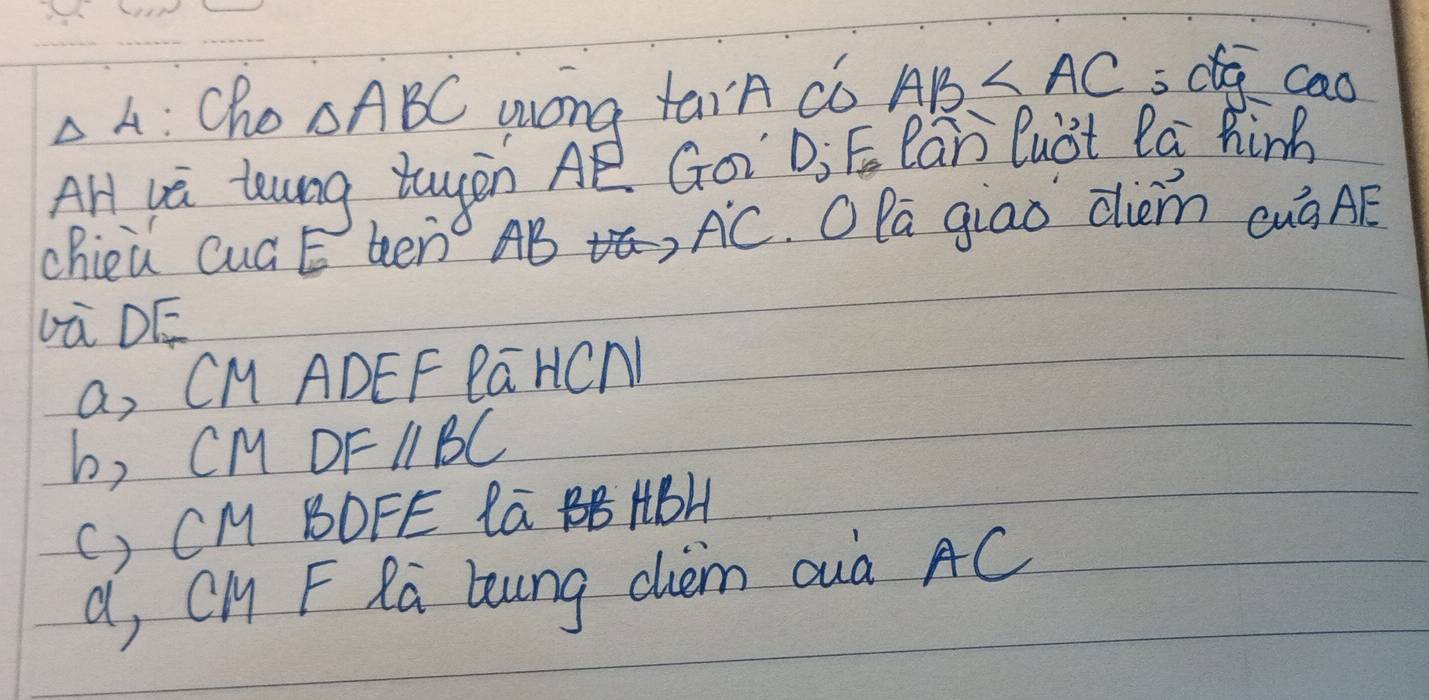 Δ 4: Cho ΔABC vuông tại A có AB < AC ; đg cao
AH và trung tuyến AE. Gọi D; F lần lượt là hình
chiếu của E trên AB, AC. O là giao điểm của AE
và DF
a, CM ADEF là HCN
b, CM DF // BC
c, CM BDFE là HBH
d, CM F là trung điểm của AC